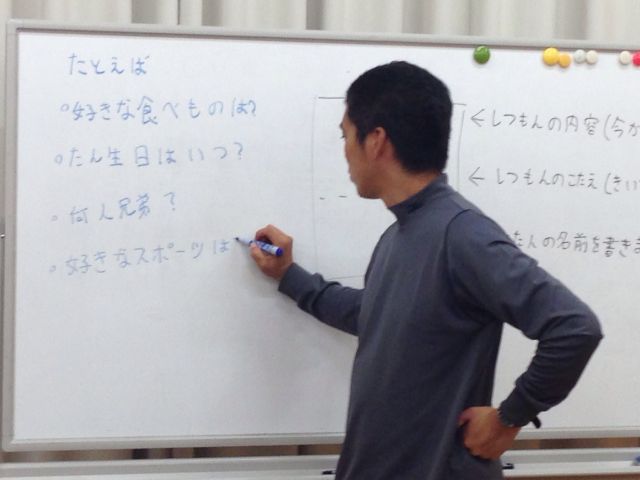 たとえば
○好きな食べものは?
○たん生日はいつ?
○何人兄弟?
○好きなスポーツは
←しつもんの内容(今か
←しつもんのこたえ(きい
たんの名前を書きま